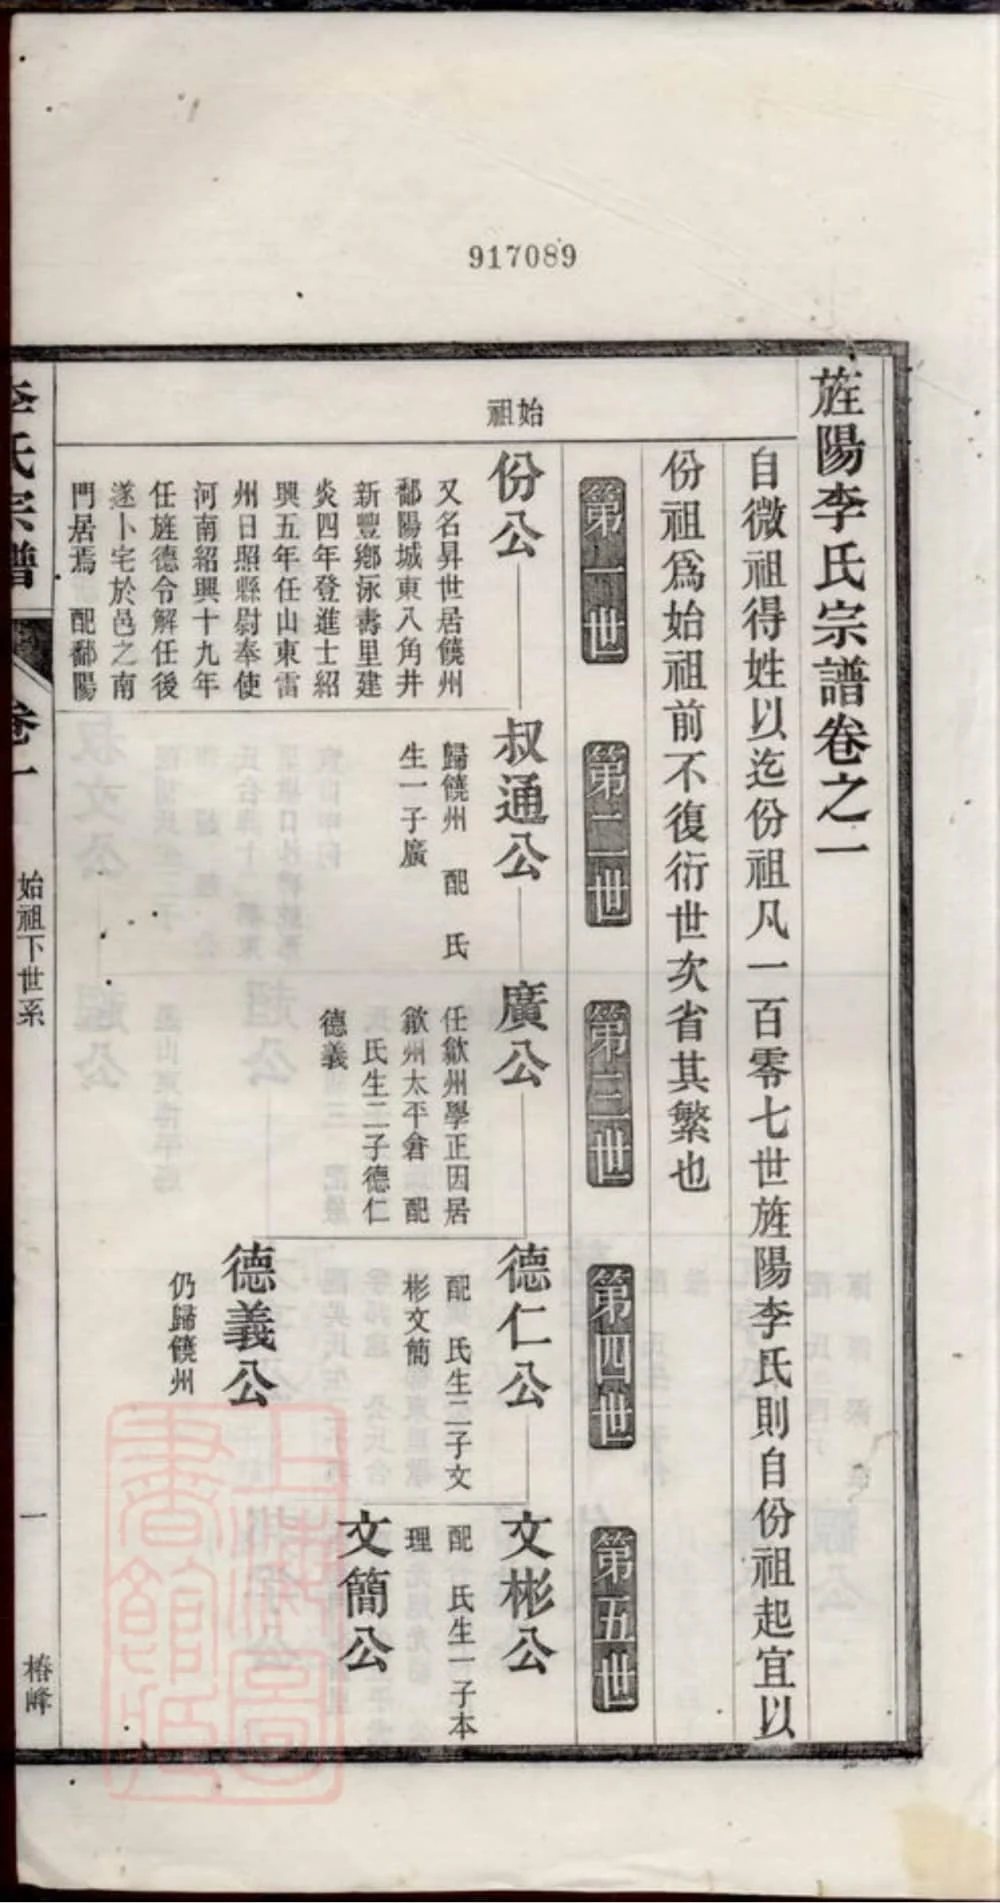 917089
旌陽李氏宗譜卷之一
自微祖得姓以迄份祖凡一百零七世旌陽李氏則自份祖起宜以
份祖爲始祖前不復衍世次省其繁也
第一世
第二世
第三世
第四世
第五世
始祖
份公
又名昇世居饒州
鄱陽城東八角井
新豐鄉泳壽里建
炎四年登進士紹
興五年任山東雷
州日照縣尉奉使
河南紹興十九年
任旌德令解任後
遂卜宅於邑之南
門居焉 配鄱陽
叔通公
歸饒州 配 氏
生一子廣
廣公
任歙州學正因居
歙州太平倉 配
氏生二子德仁
德義
德仁公
配 氏生二子文
彬文簡
德義公
仍歸饒州
文彬公
配 氏生一子本
理
文簡公
李氏宗譜
卷一
始祖下世系
一
椿峰
上海圖書館藏